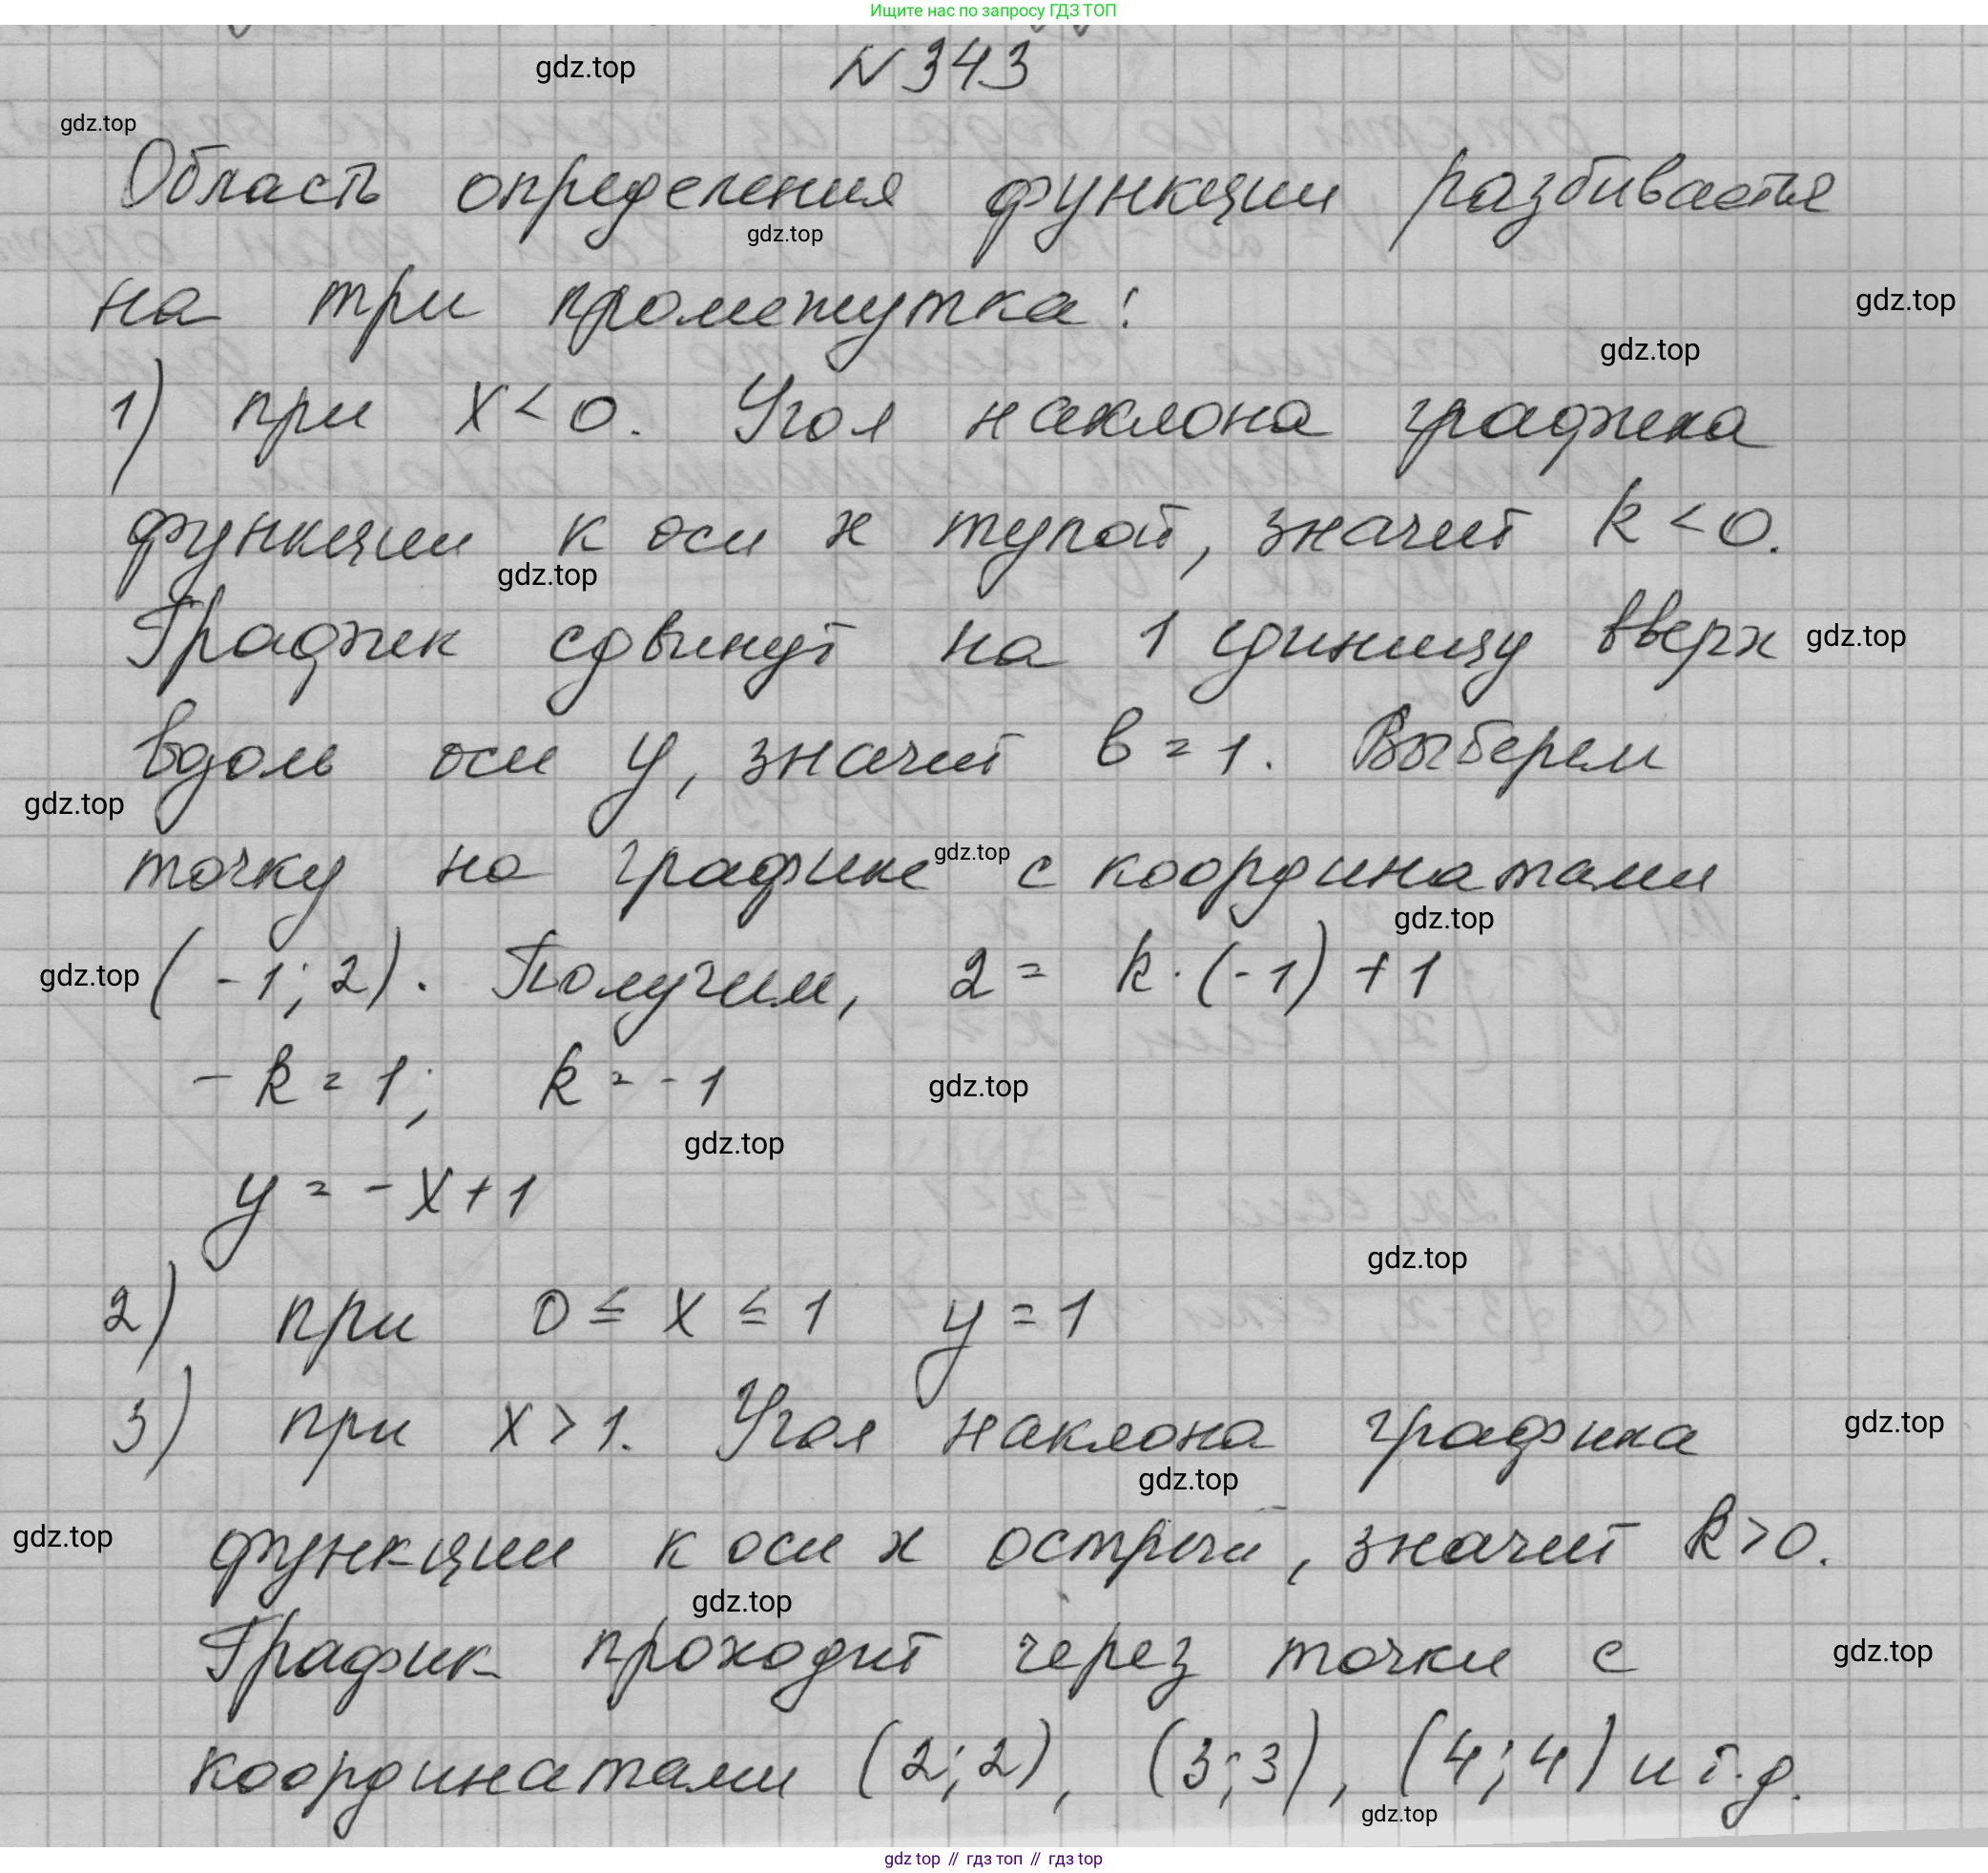 Ищите нас по запросу ГДЗ ТОП
N 343
gdz.top
gdz.top
Область определения функции разбивается
gdz.top
на три промежутка:
gdz.top
gdz.top
1) при x < 0. Угол наклона графика
функции к оси x тупой, значит k < 0.
gdz.top
График сдвинут на 1 единицу вверх
gdz.top
вдоль оси y, значит b = 1. Выберем
gdz.top
точку на графике с координатами
gdz.top
gdz.top
(-1; 2). Получим, 2 = k · (-1) + 1
gdz.top
- k = 1; k = -1
gdz.top
gdz.top
y = - x + 1
gdz.top
2) при 0 ≤ x ≤ 1 y = 1
3) при x > 1. Угол наклона графика
gdz.top
gdz.top
функции к оси x острый, значит k > 0.
gdz.top
gdz.top
График проходит через точки с
gdz.top
координатами (2; 2), (3; 3), (4; 4) и т.д.
gdz.top
gdz top // гдз топ // гдз top